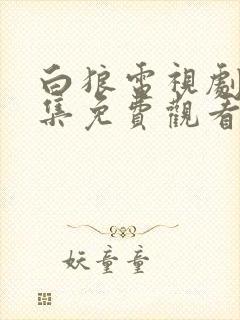 白狼電視劇
集免費觀看
妖童童